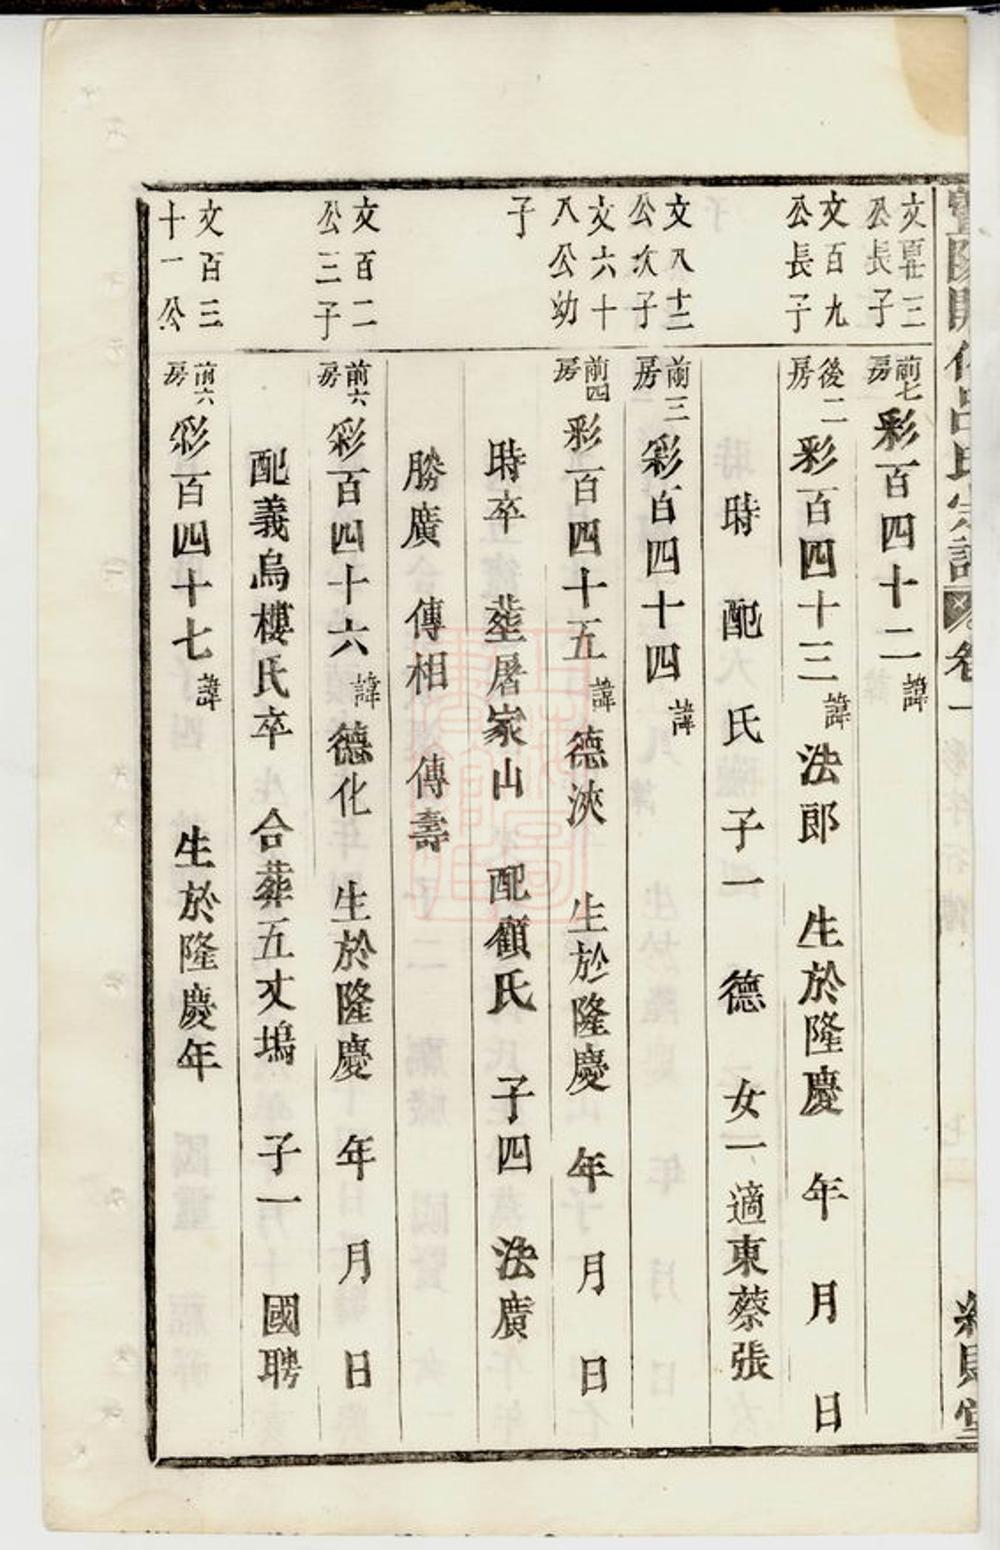 暨陽開化呂氏宗譜 卷一
文 三公長子 前七房 彩百四十二 諱
文百九公長子 後二房 彩百四十三 諱 法郎 生於隆慶 年 月 日
時 配 氏 子一 德 女一 適東蔡張
文八十二公次子 前三房 彩百四十四 諱
文六十八公幼子 前四房 彩百四十五 諱 德浹 生於隆慶 年 月 日
時卒 塟屠家山 配顧氏 子四 法廣
勝廣 傳相 傳壽
文百二公三子 前六房 彩百四十六 諱 德化 生於隆慶 年 月 日
配義烏樓氏卒 合葬五丈塢 子一 國聘
文百三十一公 前六房 彩百四十七 諱 生於隆慶年